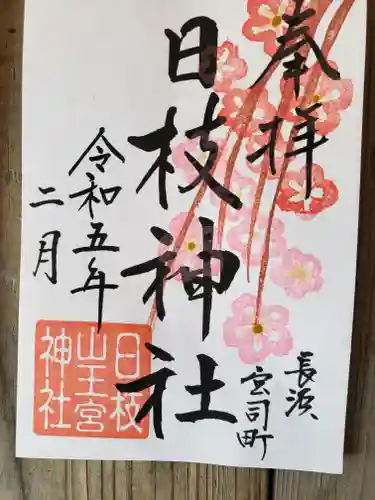 奉拝
長浜
宮司町
日枝神社
令和五年
二月
日枝
山王宮
神社